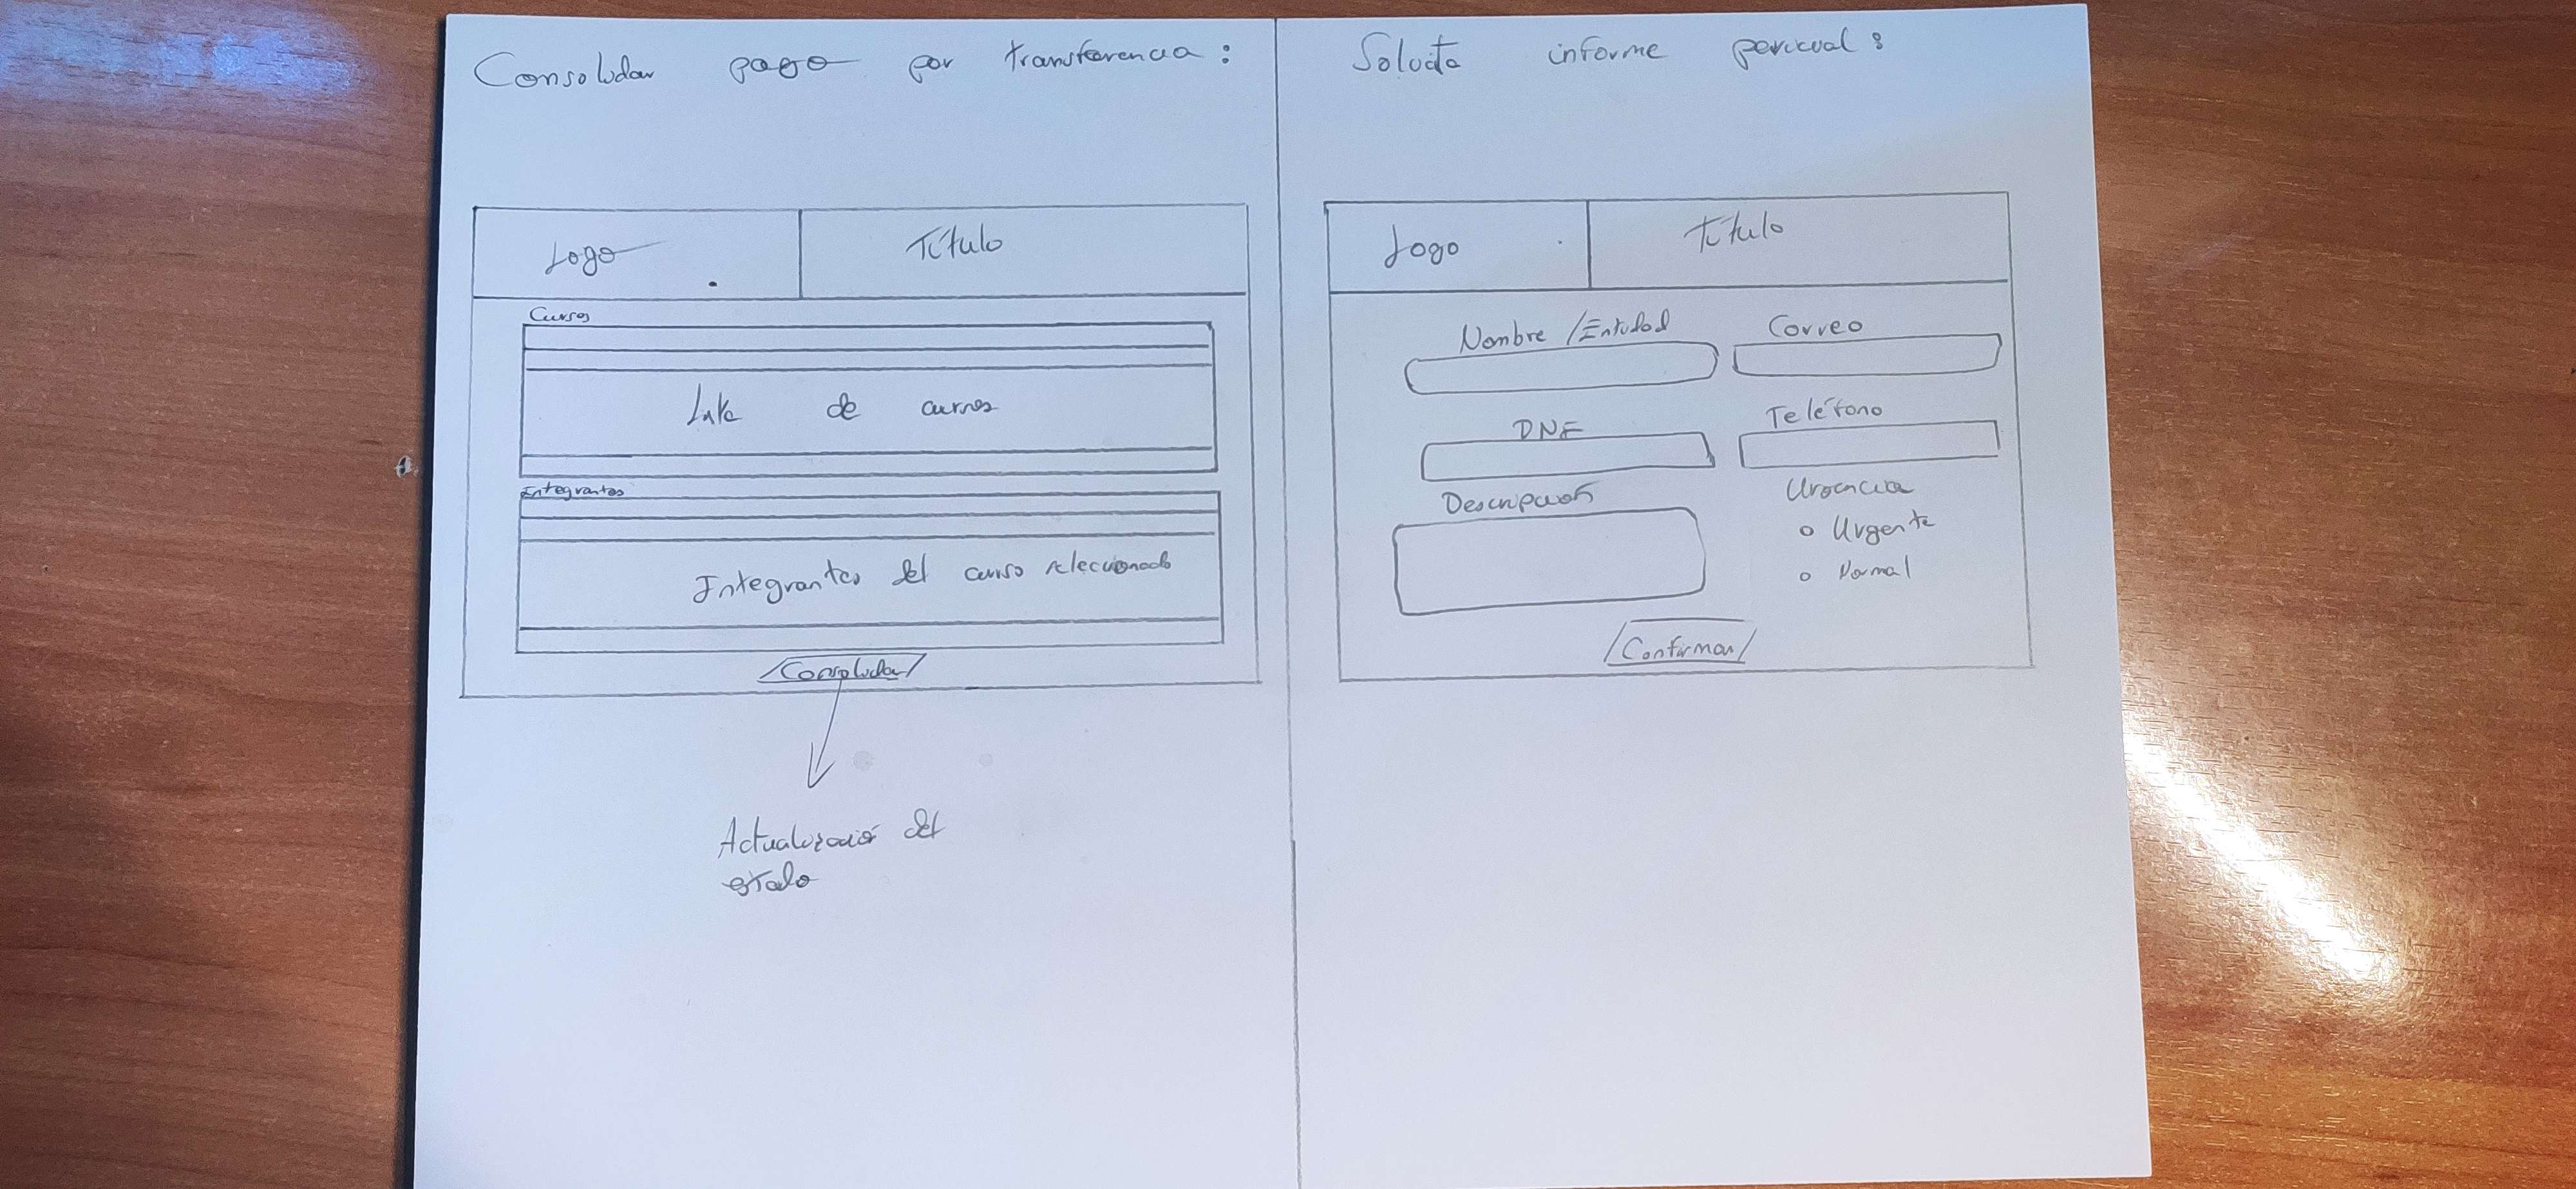 Consolidar pago por transferencia:
Logo
Título
Cursos
Lista de cursos
Integrantes
Integrantes del curso seleccionado
Consolidar
Actualización del
estado
Solicita informe pericial:
Logo
Título
Nombre / Entidad
Correo
DNI
Teléfono
Descripción
Urgencia
Urgente
Normal
Confirmar